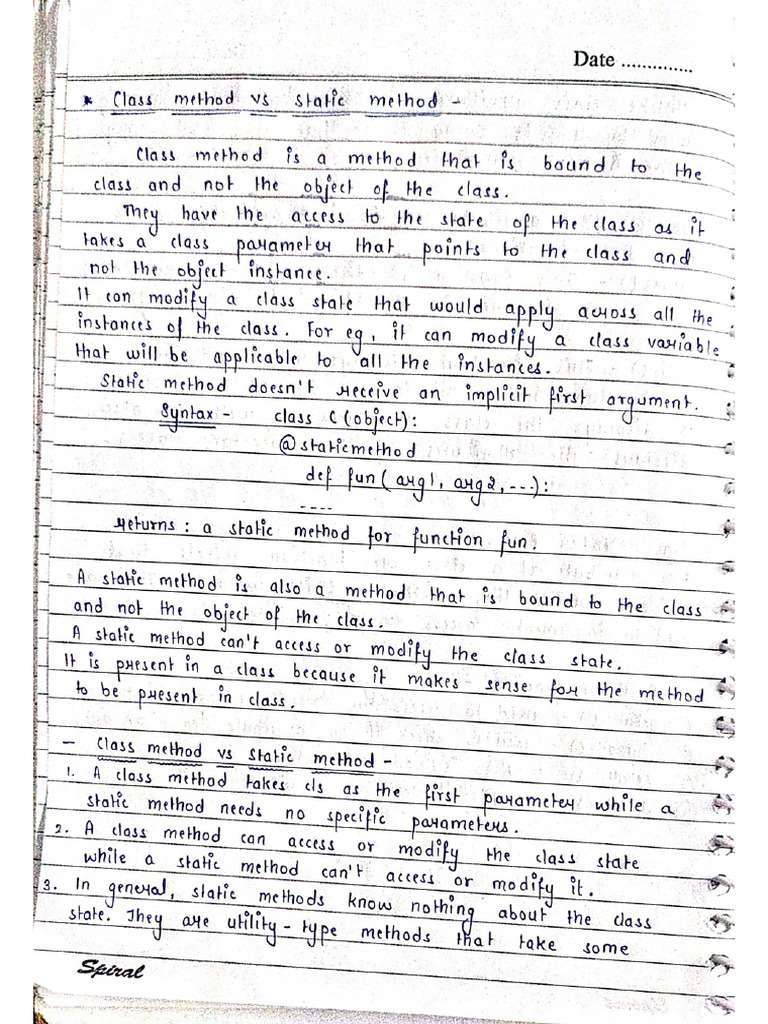 Date ..............
* Class method vs static method -
Class method is a method that is bound to the
class and not the object of the class.
They have the access to the state of the class as it
takes a class parameter that points to the class and
not the object instance.
It can modify a class state that would apply across all the
instances of the class. For eg, it can modify a class variable
that will be applicable to all the instances.
Static method doesn't receive an implicit first argument.
Syntax - class C (object):
@staticmethod
def fun( arg1, arg2, ---):
----
returns: a static method for function fun.
A static method is also a method that is bound to the class
and not the object of the class.
A static method can't access or modify the class state.
It is present in a class because it makes sense for the method
to be present in class.
- Class method vs static method -
1. A class method takes cls as the first parameter while a
static method needs no specific parameters.
2. A class method can access or modify the class state
while a static method can't access or modify it.
3. In general, static methods know nothing about the class
state. They are utility-type methods that take some
Spiral